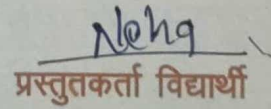 Neha
प्रस्तुतकर्ता विद्यार्थी